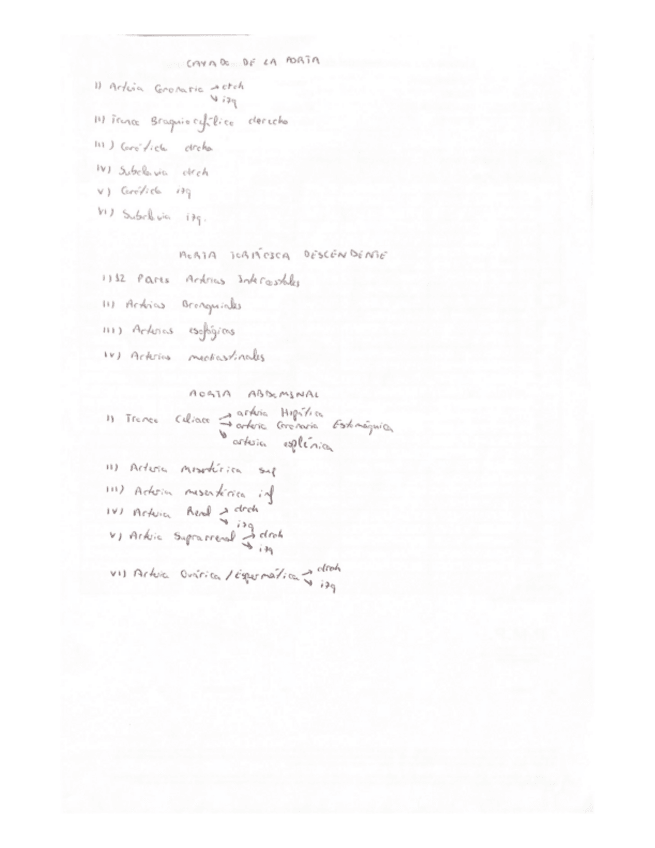 CAYADO DE LA AORTA
I) Arteria Coronaria → drch
↘ izq
II) Tronco Braquiocefálico derecho
III) Carótida drcha
IV) Subclavia drch
V) Carótida izq
VI) Subclavia izq.
AORTA TORÁCICA DESCENDENTE
I) 12 Pares Arterias Intercostales
II) Arterias Bronquiales
III) Arterias esofágicas
IV) Arterias mediastinales
AORTA ABDOMINAL
I) Tronco Celiaco → arteria Hepática
→ arteria Coronaria Estomáquica
↘ arteria esplénica
II) Arteria mesentérica sup
III) Arteria mesentérica inf
IV) Arteria Renal → drch
↘ izq
V) Arteria Suprarrenal → drch
↘ izq
VI) Arteria Ovárica / Espermática → drch
↘ izq